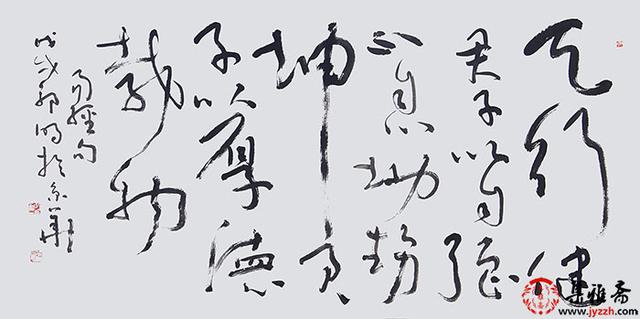 天行健
君子以自强
不息地勢
坤君
子以厚德
載物
易經句
戊戌郭明於京華
集雅斋
www.jyzzh.com